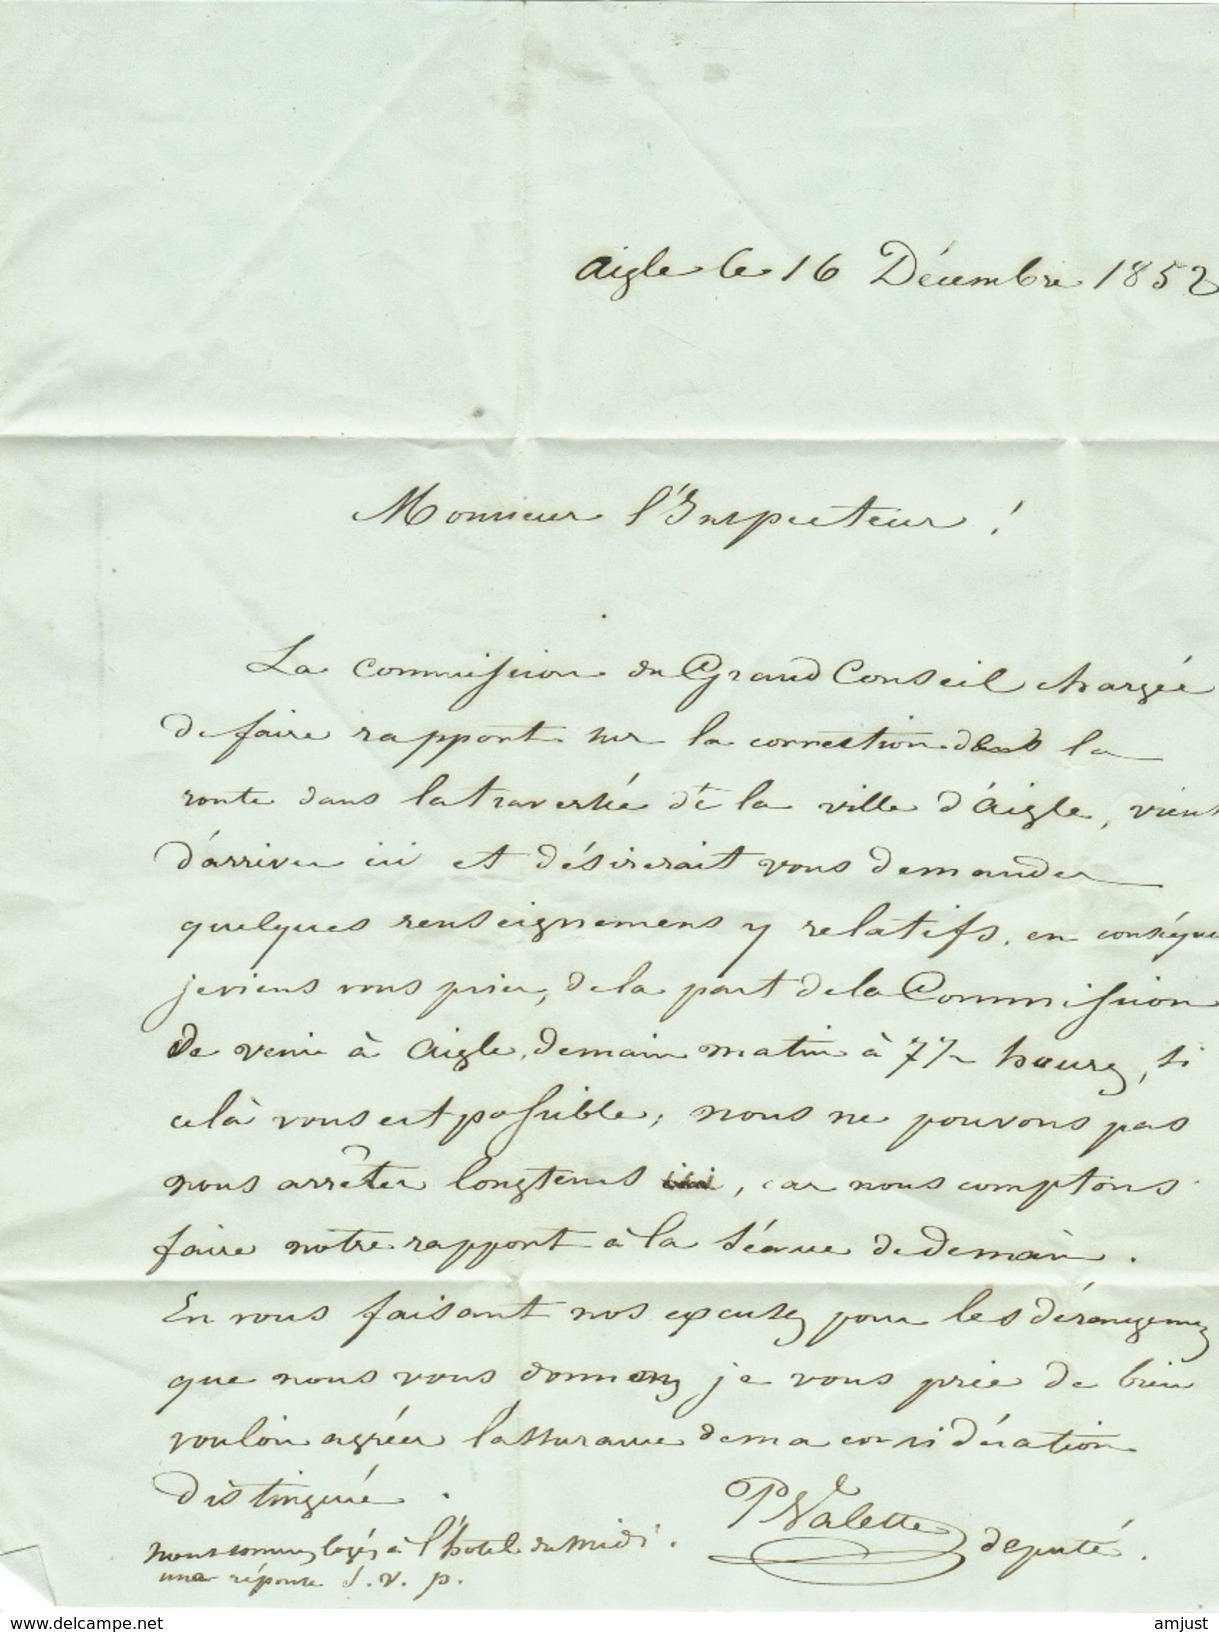 Aigle le 16 Décembre 1852
Monsieur l'Inspecteur !
La commission du Grand Conseil chargée
de faire rapport sur la correction de la
route dans la traversée de la ville d'Aigle, vient
d'arriver ici et désirerait vous demander
quelques renseignemens y relatifs, en conséque
je viens vous prier, de la part de la Commission
de venir à Aigle, demain matin à 7½ heures, si
celà vous est possible; nous ne pouvons pas
nous arrêter longtems ici, car nous comptons
faire notre rapport à la séance de demain.
En vous faisant nos excuses pour les dérangemens
que nous vous donnons je vous prie de bien
vouloir agréer l'assurance de ma considération
distinguée.
P Valette député.
nous sommes logés à l'hôtel du midi.
une réponse s.v.p.
www.delcampe.net
amjust